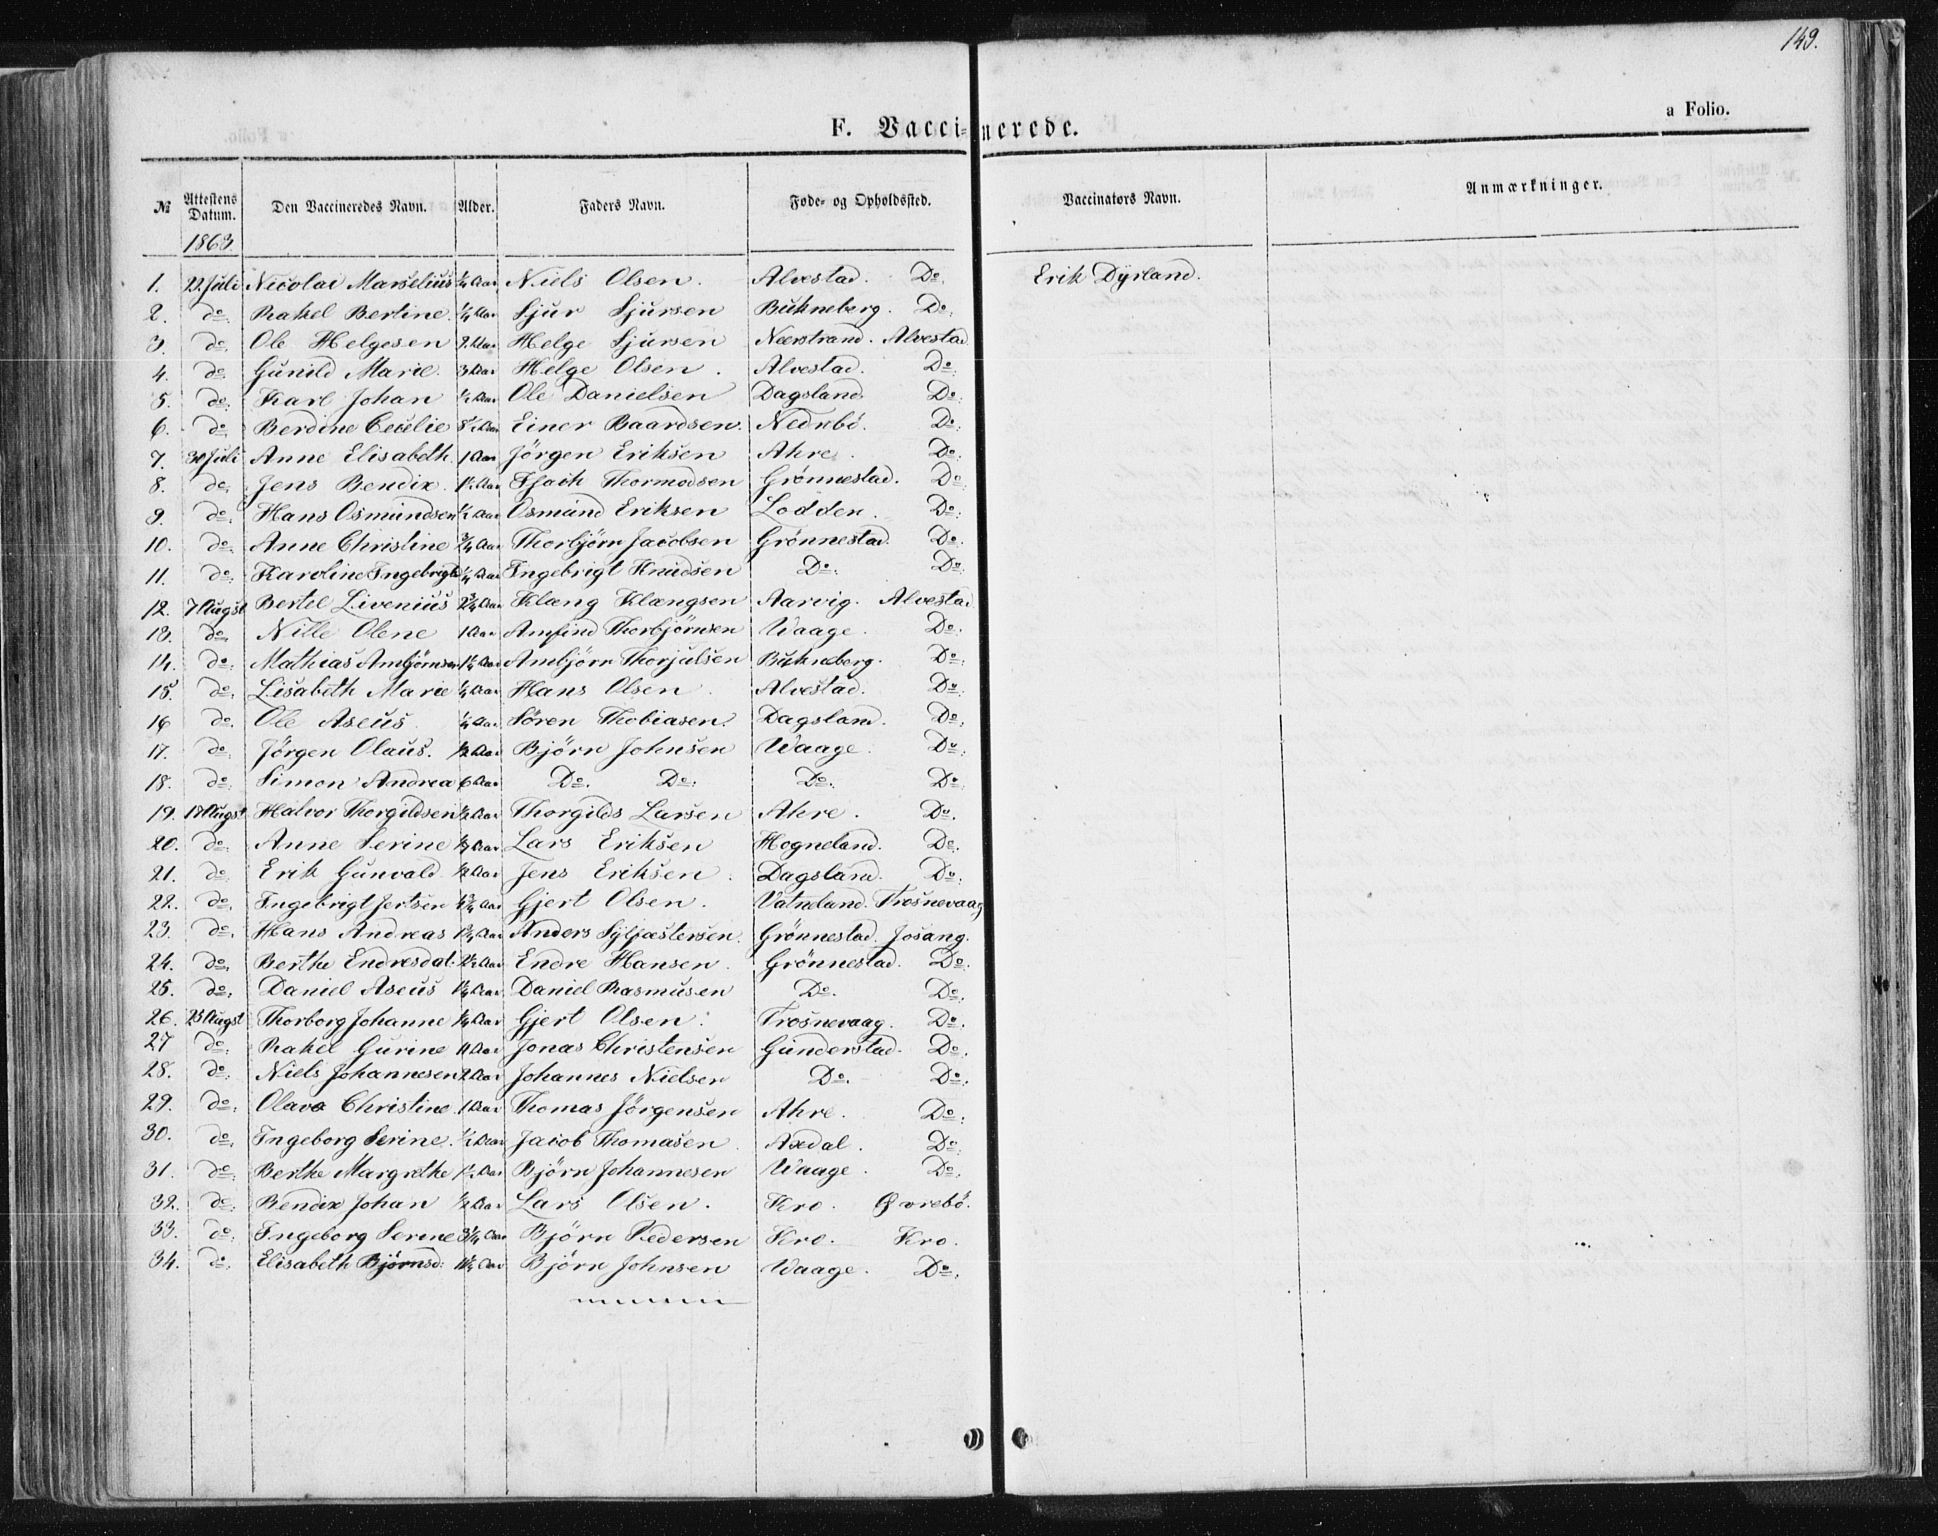 149.
F. Vaccinerede.
a Folio.
№ Attestens Datum. Den Vaccineredes Navn. Alder. Faders Navn. Føde- og Opholdssted. Vaccinators Navn. Anmærkninger.
1863
1. 22 Juli Nicolai Marselius ¼ Aar Niels Olsen. Alvestad. Do. Erik Dyrland.
2. do. Rakel Bertine. ¼ Aar Sjur Sjursen Bukneberg. Do.
3. do. Ole Helgesen 2 Aar Helge Sjursen Nærstrand. Alvestad
4. do. Gunild Marie. 3 Aar Helge Olsen. Alvestad. Do.
5. do. Karl Johan ½ Aar Ole Danielsen Dagsland Do.
6. do. Berdine Cecilie Aar Einer Baardsen. Nedrebö. Do.
7. 30 Juli Anne Elisabeth. 1 Aar Jörgen Eriksen Ahre. Do.
8. do. Jens Bendix. 1½ Aar Thormodsen Grönnestad. Do.
9. do. Hans Osmundsen ½ Aar Osmund Eriksen Lodden. Do.
10. do. Anne Christine ¾ Aar Thorbjörn Jacobsen Grönnestad. Do.
11. do. Karoline Ingebrigtd ¼ Aar Ingebrigt Knudsen Do. Do.
12. 7 Augst Bertel Livenius 2¾ Aar Klæng Klængsen Aarvig. Alvestad
13. do. Nille Olene 1 Aar Amfind Thorbjörnsen Waage. Do.
14. do. Mathias Ambjörnsen 1¼ Aar Ambjörn Thorjulsen Bukneberg. Do.
15. do. Lisabeth Marie ¼ Aar Hans Olsen. Alvestad. Do.
16 do. Ole Aseus. ¼ Aar Sören Thobiasen. Dagsland. Do.
17. do. Jörgen Olaus. ½ Aar Björn Johnsen Waage. Do.
18. do. Simon Andrea 6 Aar Do. Do. Do. Do.
19. 18 Augst Halvor Thorgildsen ½ Aar Thorgilds Larsen Ahre. Do.
20. do. Anne Serine ½ Aar Lars Eriksen Hogneland. Do.
21. do. Erik Gunvald ½ Aar Jens Eriksen. Dagsland. Do.
22. do. Ingebrigt Jertsen 1¾ Aar Gjert Olsen. Vatneland. Trosnevaag
23. do. Hans Andreas 1¾ Aar Anders Syljæstersen. Grönnestad. Josang.
24. do. Berthe Endresdat. 2½ Aar Endre Hansen. Grönnestad. Do.
25. do. Daniel Aseus 1¼ Aar Daniel Rasmusen Do. Do.
26. 25 Augst Thorborg Johanne ¼ Aar Gjert Olsen. Trosnevaag. Do.
27 do. Rakel Gurine 11 Aar Jonas Christensen Gunderstad. Do.
28. do. Niels Johannesen 2 Aar Johannes Nielsen Do. Do.
29. do. Olava Christine. 1 Aar Thomas Jörgensen Ahre. Do.
30. do. Ingeborg Serine. ½ Aar Jacob Thomasen. Axdal. Do.
31. do. Berthe Margrethe 1½ Aar Björn Johannesen Waage. Do.
32. do. Bendix Johan ½ Aar Lars Olsen. Kro. Øvrebö.
33. do. Ingeborg Serine 3¼ Aar Björn Pedersen Kro. Kro.
34. do. Elisabeth Björnsd: 11½ Aar Björn Johnsen Waage. Do.